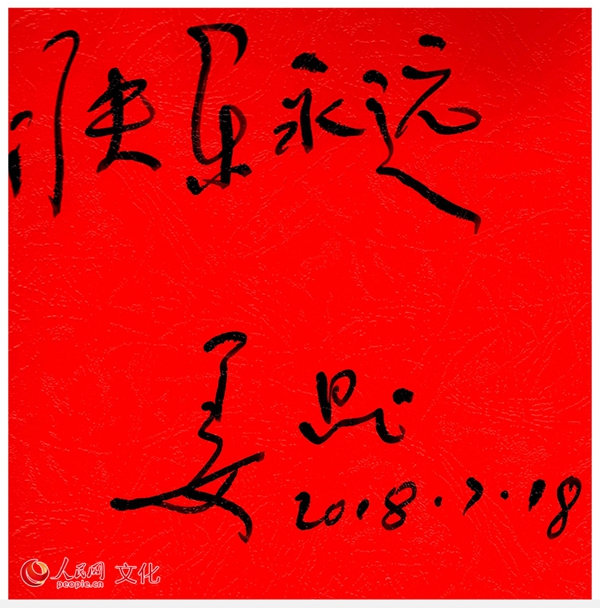 快乐永远
姜昆
2018.7.18
人民网 文化
people.cn